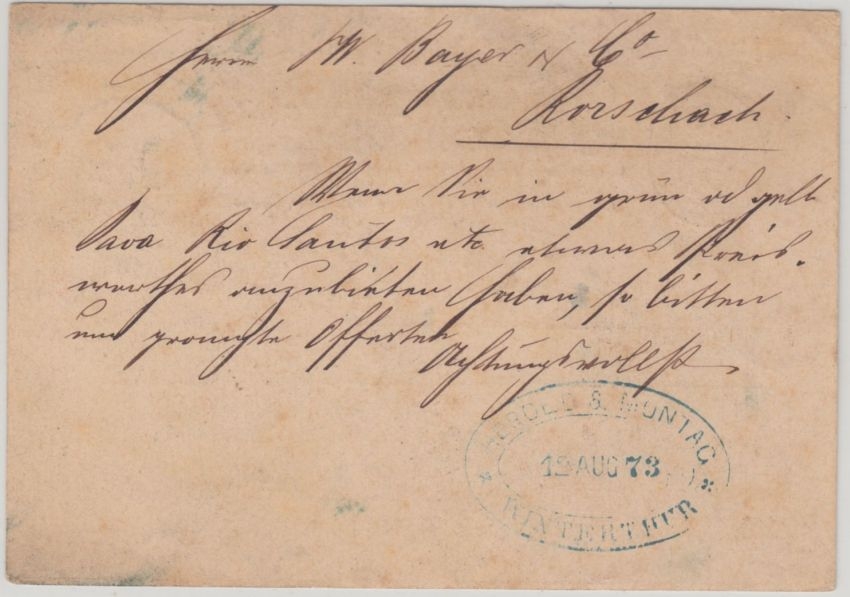 Herrn W. Bayer & Co
Rorschach.
Wenn Sie in grün od gelb
Java Rio Santos etc. etwas Preis-
werthes anzubieten haben, so bitten
um prompte Offerten
Achtungsvollst
& MONTAG
12 AUG 73
WINTERTHUR